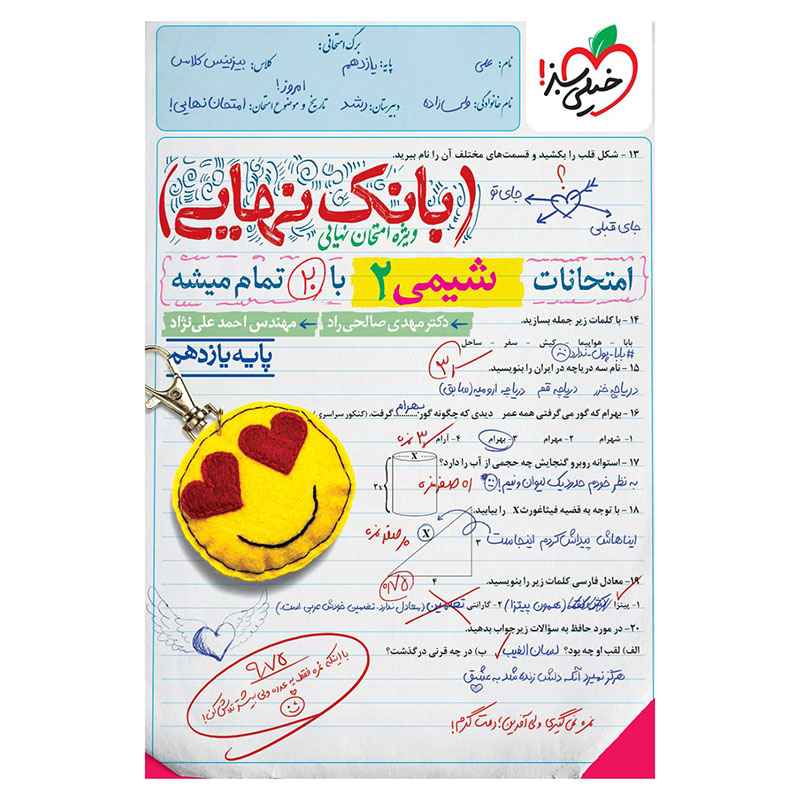 خیلی سبز!
برگ امتحانی:
نام: علی
پایه: یازدهم
کلاس: بیزینس کلاس
امروز!
نام خانوادگی: ولی‌زاده
دبیرستان: رشد
تاریخ و موضوع امتحان: امتحان نهایی!
۱۳ - شکل قلب را بکشید و قسمت‌های مختلف آن را نام ببرید.
؟
جای تو
جای قبلی
(بانک نهایی)
ویژه امتحان نهایی
امتحانات شیمی ۲ با ۲۰ تمام میشه
دکتر مهدی صالحی راد ← مهندس احمد علی‌نژاد ←
پایه یازدهم
۱۴ - با کلمات زیر جمله بسازید.
بابا - هواپیما - کیش - سفر - ساحل
#بابا-پول-ندارد
۱۵ - نام سه دریاچه در ایران را بنویسید.
دریاچه خزر دریاچه قم دریاچه ارومیه (سابق)
۱۶ - بهرام که گور می‌گرفتی همه عمر دیدی که چگونه گور بهرام گرفت. (کنکور سراسری)
۱- شهرام ۲- مهرام ۳- بهرام ۴- آرام
۱۷ - استوانه روبرو گنجایش چه حجمی از آب را دارد؟
به نظر خودم حدود یک لیوان و نیم!
X
2x
۱۸ - با توجه به قضیه فیثاغورث X را بیابید.
ایناهاش پیداش کردم اینجاست
X
۳
۴
۱۹- معادل فارسی کلمات زیر را بنویسید.
۱- پیتزا (همون پیتزا) ۲- گارانتی تضمین (معادل ندارد. تضمین خودش عربی است.)
۲۰- در مورد حافظ به سؤالات زیر جواب بدهید.
الف) لقب او چه بود؟ لسان الغیب ب) در چه قرنی در گذشت؟
هرگز نمیرد آنکه دلش زنده شد به عشق
۹/۷۵
با اینکه نمره فقط یه عدده ولی بیشتر تلاش کن!
نمره نمی‌گیری ولی آفرین! دمت گرم!